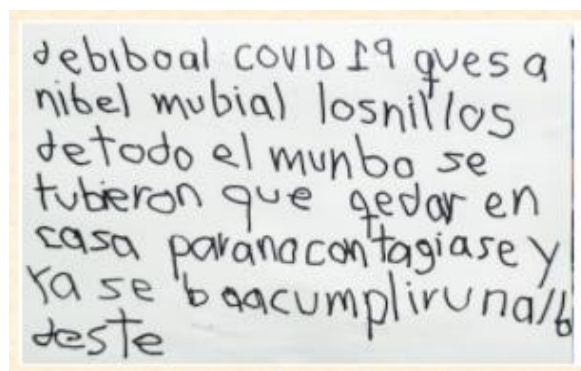 debiboal COVID 19 ques a
nibel mubial losnillos
detodo el munbo se
tubieron que qedar en
casa paranacontagiase y
Ya se baacumplir una
deste